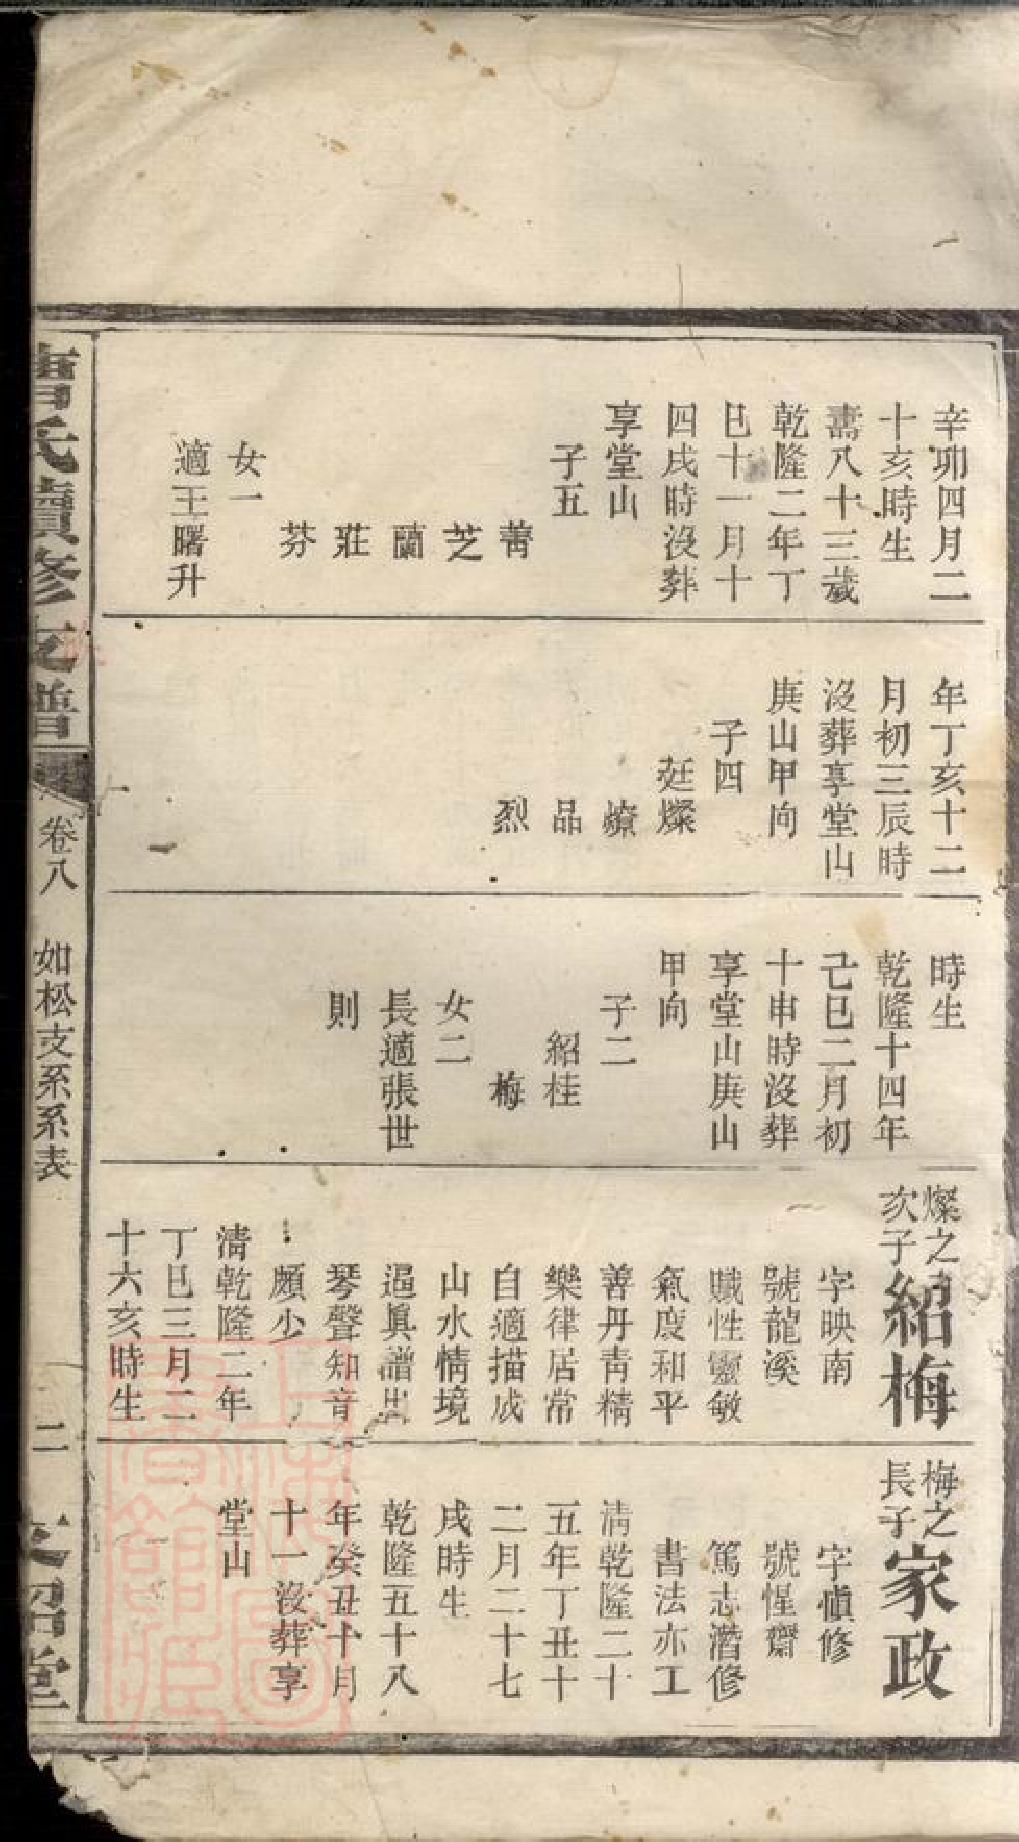 辛卯四月二
十亥時生
壽八十三歲
乾隆二年丁
巳十一月十
四戌時沒葬
享堂山
子五
菁
芝
蘭
莊
芬
女一
適王曙升
年丁亥十二
月初三辰時
沒葬享堂山
庚山甲向
子四
廷燦
品
烈
時生
乾隆十四年
己巳二月初
十申時沒葬
享堂山庚山
甲向
子二
紹桂
梅
女二
長適張世
則
燦之
次子
紹梅
字映南
號龍溪
賦性靈敏
氣度和平
善丹青精
樂律居常
自適描成
山水情境
逼眞譜出
琴聲知音
頗少
清乾隆二年
丁巳三月二
十六亥時生
梅之
長子
家政
字愼修
號惺齋
篤志潛修
書法亦工
清乾隆二十
五年丁丑十
二月二十七
戌時生
乾隆五十八
年癸丑十月
十一沒葬享
堂山
氏續修支譜
卷八
如松支系系表
二
紹堂